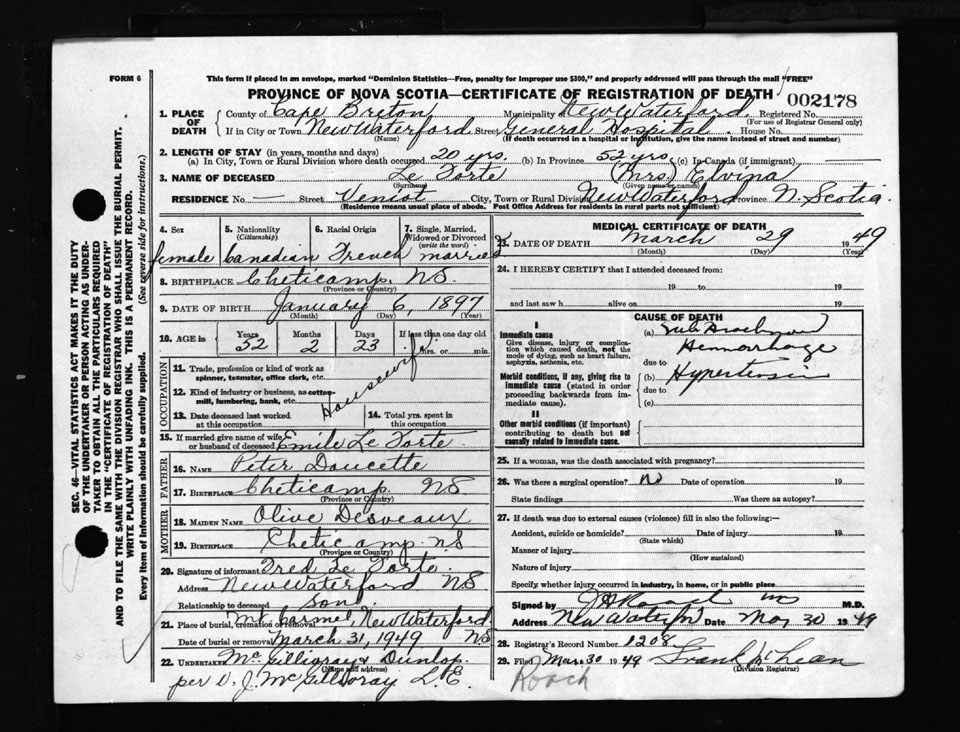 FORM 6
This form if placed in an envelope, marked "Dominion Statistics—Free, penalty for improper use $300," and properly addressed will pass through the mail "FREE"
PROVINCE OF NOVA SCOTIA—CERTIFICATE OF REGISTRATION OF DEATH
002178
1. PLACE OF DEATH County of Cape Breton Municipality New Waterford Registered No.
(For use of Registrar General only)
If in City or Town New Waterford Street General Hospital House No.
(Name) (If death occurred in a hospital or institution, give the name instead of street and number)
2. LENGTH OF STAY (in years, months and days)
(a) In City, Town or Rural Division where death occurred 20 yrs. (b) In Province 52 yrs. (c) In Canada (if immigrant)
3. NAME OF DECEASED Le Forte (Mrs) Elvina
(Surname) (Given name or names)
RESIDENCE No. — Street City, Town or Rural Division New Waterford Province N. Scotia
(Residence means usual place of abode. Post Office Address for residents in rural parts not sufficient)
4. Sex female
5. Nationality (Citizenship) Canadian
6. Racial Origin French
7. Single, Married, Widowed or Divorced (write the word) married
8. BIRTHPLACE Cheticamp NS.
(Province or Country)
9. DATE OF BIRTH January 6, 1897
(Month) (Day) (Year)
10. AGE in Years 52 Months 2 Days 23 If less than one day old hrs. or min.
OCCUPATION
11. Trade, profession or kind of work as spinner, teamster, office clerk, etc.
Housewife
12. Kind of industry or business, as cotton-mill, lumbering, bank, etc.
13. Date deceased last worked at this occupation
14. Total yrs. spent in this occupation
15. If married give name of wife or husband of deceased Emile Le Forte
FATHER
16. NAME Peter Doucette
17. BIRTHPLACE Cheticamp NS
(Province or Country)
MOTHER
18. MAIDEN NAME Olive Desveaux
19. BIRTHPLACE Cheticamp N.S
(Province or Country)
20. Signature of informant Fred Le Forte
Address New Waterford NS
Relationship to deceased Son
21. Place of burial, cremation or removal Mt Carmel, New Waterford
Date of burial or removal March 31, 1949 N.S
22. UNDERTAKER McGilligray & Dunlop.
(Name and address)
per J. McGilligray L.E.
MEDICAL CERTIFICATE OF DEATH
23. DATE OF DEATH March 29 1949
(Month) (Day) (Year)
24. I HEREBY CERTIFY that I attended deceased from:
19 to 19
and last saw h alive on 19
CAUSE OF DEATH
I
Immediate cause
Give disease, injury or complication which caused death, not the mode of dying, such as heart failure, asphyxia, asthenia, etc.
(a) Sub Arachnoid
Hemorrhage
due to
Morbid conditions, if any, giving rise to immediate cause (stated in order proceeding backwards from immediate cause).
(b) Hypertension
due to
(c)
II
Other morbid conditions (if important) contributing to death but not causally related to immediate cause.
25. If a woman, was the death associated with pregnancy?
26. Was there a surgical operation? No Date of operation 19
State findings Was there an autopsy?
27. If death was due to external causes (violence) fill in also the following:—
Accident, suicide or homicide? Date of injury 19
(State which)
Manner of injury
(How sustained)
Nature of injury
Specify whether injury occurred in industry, in home, or in public place
Signed by J H Roach MD M.D.
Address New Waterford Date Mar 30 1949
28. Registrar's Record Number 1208
29. Filed Mar. 30 1949 Frank McLean
(Division Registrar)
Roach
SEC. 46—VITAL STATISTICS ACT MAKES IT THE DUTY
OF THE UNDERTAKER OR PERSON ACTING AS UNDERTAKER TO OBTAIN ALL THE PARTICULARS REQUIRED
IN THE "CERTIFICATE OF REGISTRATION OF DEATH"
AND TO FILE THE SAME WITH THE DIVISION REGISTRAR WHO SHALL ISSUE THE BURIAL PERMIT.
WRITE PLAINLY WITH UNFADING INK. THIS IS A PERMANENT RECORD.
Every item of information should be carefully supplied. (See reverse side for instructions.)